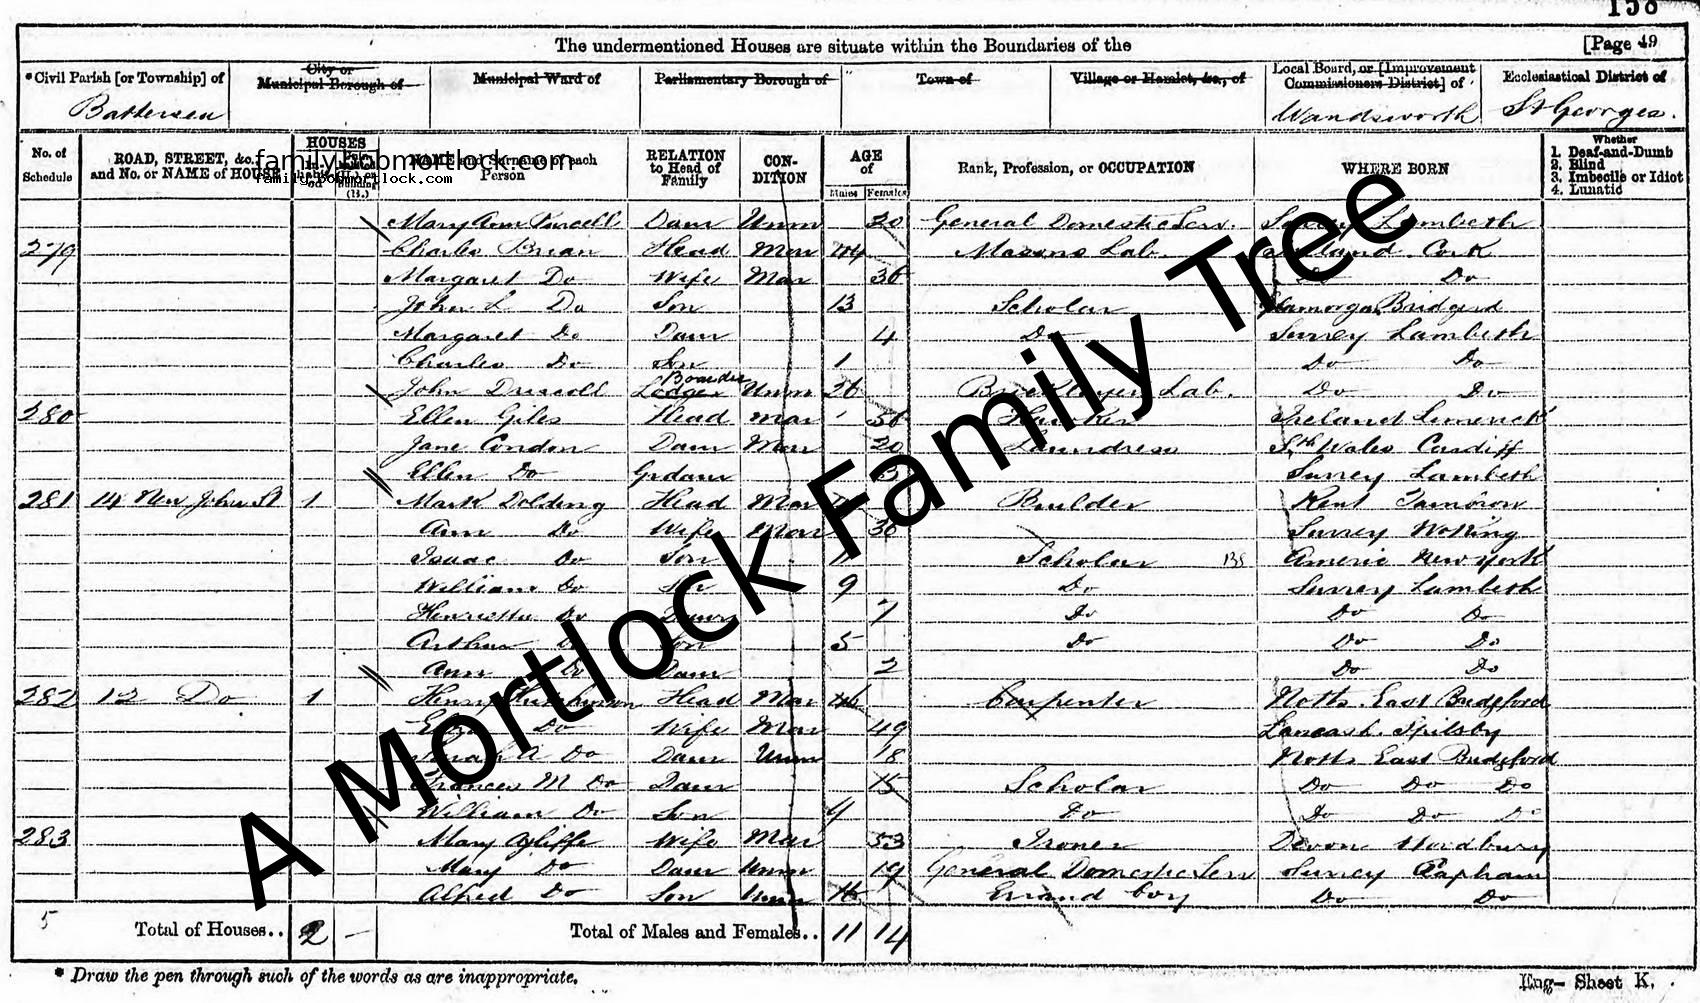 158
The undermentioned Houses are situate within the Boundaries of the [Page 49
*Civil Parish [or Township] of City or Municipal Borough of Municipal Ward of Parliamentary Borough of Town of Village or Hamlet, &c., of Local Board, or [Improvement Commissioners District] of Ecclesiastical District of
Battersea Wandsworth St Georges.
No. of Schedule ROAD, STREET, &c., and No. or NAME of HOUSE HOUSES NAME and Surname of each Person RELATION to Head of Family CONDITION AGE of Males Females Rank, Profession, or OCCUPATION WHERE BORN Whether 1. Deaf-and-Dumb 2. Blind 3. Imbecile or Idiot 4. Lunatic
family.bobmortlock.com
family.bobmortlock.com
Mary Ann Purcell Daur Unm 20 General Domestic Serv. Surrey Lambeth
279 Charles Brian Head Mar 44 Masons Lab. Ireland Cork
Margaret Do Wife Mar 36 Do Do
John L Do Son 13 Scholar Bridgend
Margaret Do Daur 4 Do Surrey Lambeth
Charles Do Son 1 Do Do
John Driscoll Boarder Lodger Unm 26 Lab. Do Do
280 Ellen Giles Head Mar 56 Hawker Ireland Limerick
Jane Condon Daur Mar 20 Laundress Sth Wales Cardiff
Ellen Do Grdaur 3 Surrey Lambeth
281 14 New John St 1 Mark Dolding Head Mar Builder Kent
Ann Do Wife Mar 36 Surrey Woking
Isaac Do Son 11 Scholar Americ New York
William Do Son 9 Do Surrey Lambeth
Henrietta Do Daur 7 Do Do Do
Arthur Do Son 5 Do Do Do
Ann Do Daur 2 Do Do
282 12 Do 1 Henry Head Mar 46 Carpenter Notts. East Bridgford
Do Wife Mar 49 Lancash. Spilsby
Sarah A Do Daur Unm 18 Notts East Bridgford
Frances M Do Daur 15 Scholar Do Do Do
William Do Son 4 Do Do Do Do
283 Mary Ayliffe Wife Mar 53 Ironer Devon
Mary Do Daur Unm 19 General Domestic Serv Surrey Clapham
Alfred Do Son Unm 16 Errand boy Do Do
5 Total of Houses.. 2 — Total of Males and Females.. 11 14
* Draw the pen through such of the words as are inappropriate.
Eng- Sheet K.
A Mortlock Family Tree